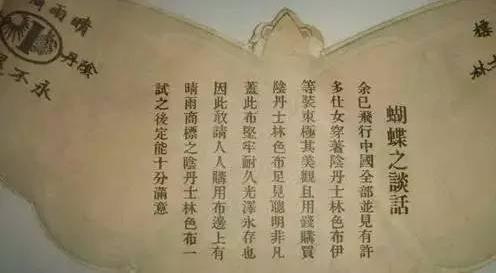 標
林
蝴蝶之談話
余已飛行中國全部並見有許
多仕女穿著陰丹士林色布伊
等裝束極其美觀且用錢購買
陰丹士林色布足見聰明非凡
蓋此布堅牢耐久光澤永存也
因此敢請人人購用布邊上有
晴雨商標之陰丹士林色布一
試之後定能十分滿意
晴雨
陰丹
永不